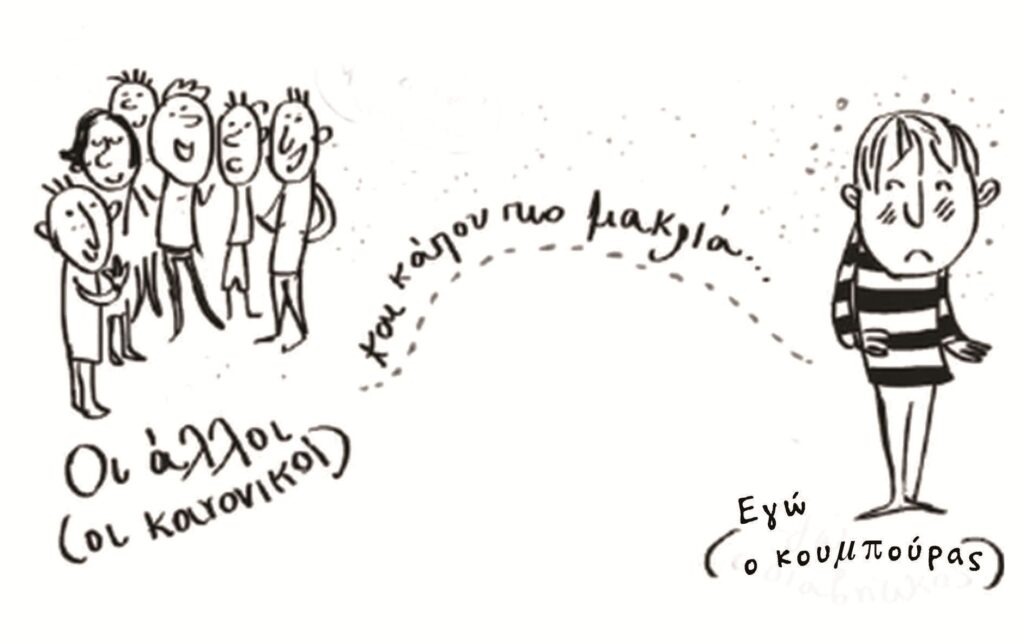 Οι άλλοι
(οι κανονικοί)
και κάπου πιο μακριά...
Εγώ
(ο κουμπούρας)